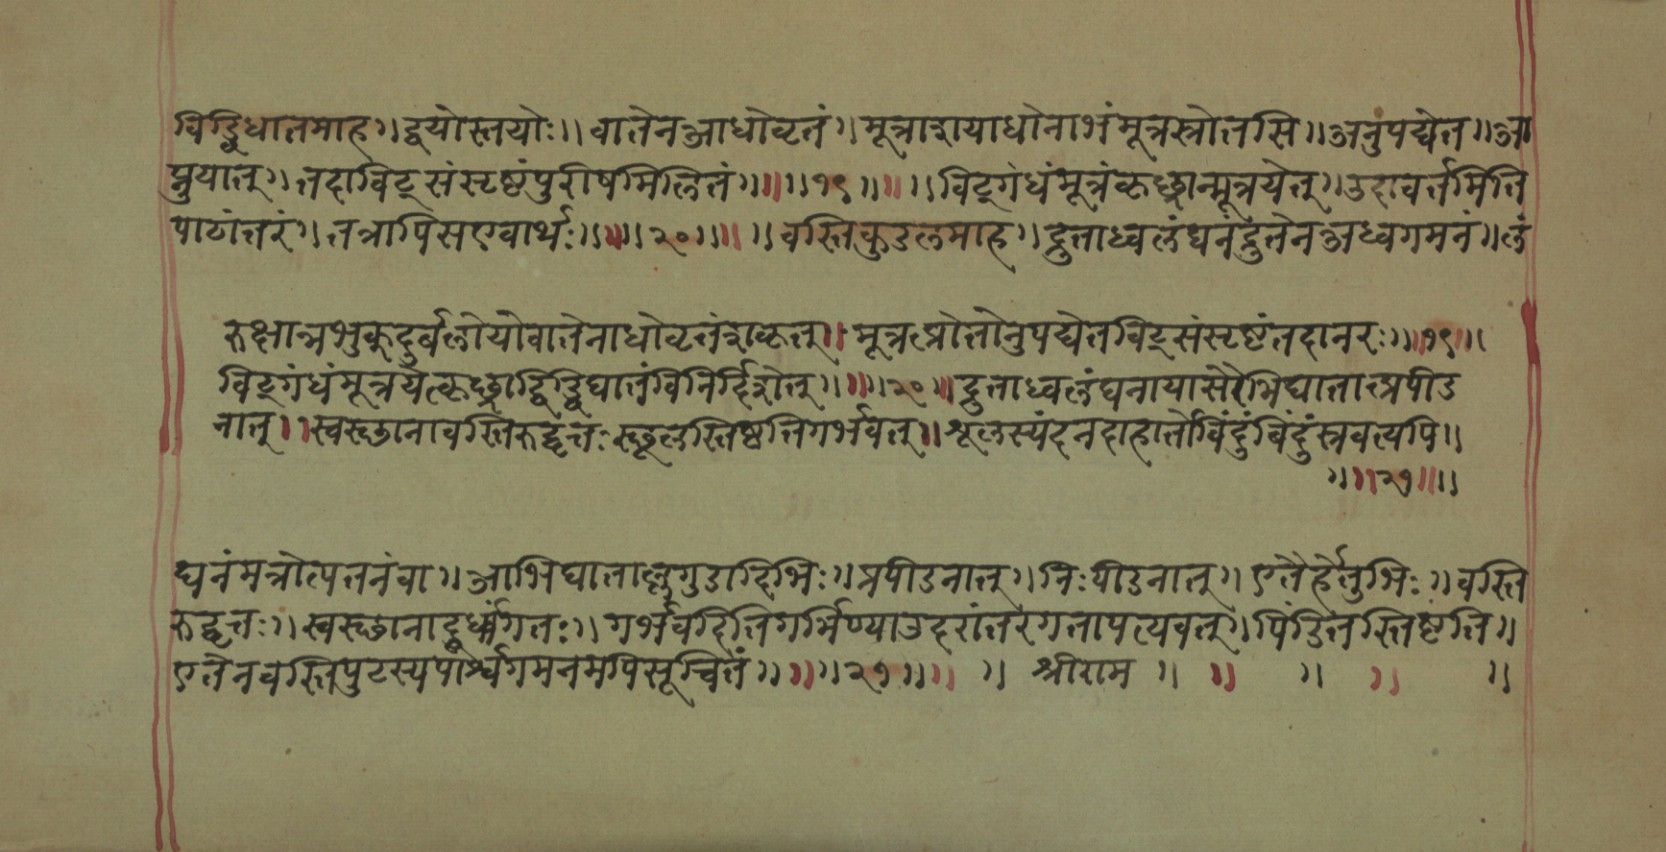 विड्विघातमाह ॥ द्वयोस्तयोः ॥ वातेनआधोवृतं ॥ मूत्राशयाधोनाभंमूत्रस्त्रोतसि ॥ अनुपद्येत ॥ आ
प्नुयात् ॥ तदाविट्संसृष्टंपुरीषमिलितं ॥ ॥ ॥ १९ ॥ ॥ ॥ विट्गंधंमूत्रंकृछ्रान्मूत्रयेत् ॥ उदावर्तमिति
पाठांतरं ॥ तत्रापिसएवार्थः ॥ ॥ ॥ २० ॥ ॥ ॥ वस्तिकुडलमाह ॥ द्रुताध्वलंघनंद्रुतेनअध्वगमनं ॥ लं
रुक्षान्नभुक्दुर्बलोयोवातेनाधोवृतंशकृत् ॥ मूत्रश्रोतोनुपद्येतविट्संसृष्टंतदानरः ॥ ॥ १९ ॥
विट्गंधंमूत्रयेत्कृछ्राद्विड्विघातंविनिर्दिशेत् ॥ ॥ ॥ २० ॥ द्रुताध्वलंघनायासैरभिघातात्प्रपीड
नात् ॥ स्वस्छानावस्तिरुद्वृत्तः स्छूलस्तिष्टतिगर्भवत् ॥ शूलस्यंदनदाहार्तोविंदुंबिंदुंस्त्रवत्यपि ॥
॥ ॥ २१ ॥ ॥
घनंमत्रोत्पतनंवा ॥ आभिघाताल्लगुडादिभिः ॥ प्रपीडनात् ॥ निःपीडनात् ॥ एतैर्हेतुभिः ॥ वस्ति
रुद्वृत्तः ॥ स्वस्छानादूर्ध्वंगतः ॥ गर्भवदितिगर्भिण्याउदरांतरगतापत्यवत् ॥ पिंडितस्तिष्टति ॥
एतेनवस्तिपुटस्यपार्श्वगमनमपिसूचितं ॥ ॥ ॥ २१ ॥ ॥ ॥ श्रीराम ॥ ॥ ॥ ॥ ॥